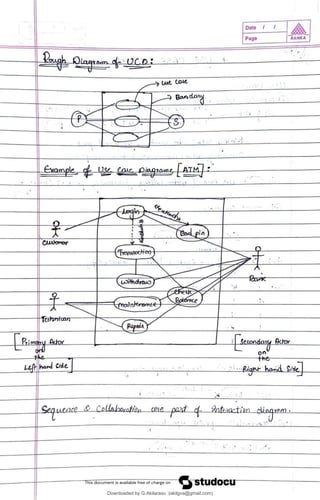 Date / /
Page
SANKA
Rough Diagram of UCD :
Use Case
Boundary
P
S
Example of Use Case Diagrams [ATM] :
Login
Bad pin
Customer
Transaction
Withdraw
Check
Balance
Bank
maintenance
Technician
Repair
[Primary Actor
on
the
Left hand Side]
[Secondary Actor
on
the
Right hand Side]
Sequence & Collaboration are part of interaction diagram.
This document is available free of charge on
studocu
Downloaded by G.Akilarasu (akilgna@gmail.com)